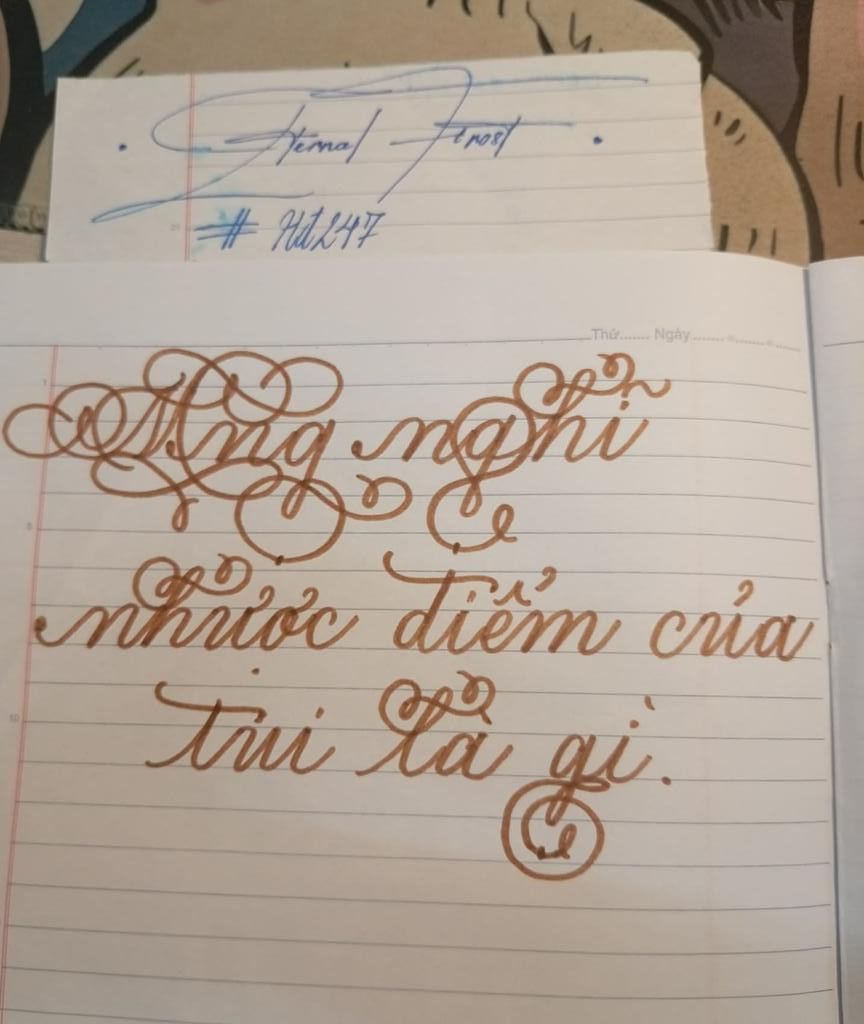 . Eternal Frost .
# Hd247
Thứ....... Ngày.......
Mng nghĩ
nhược điểm của
tui là gì.